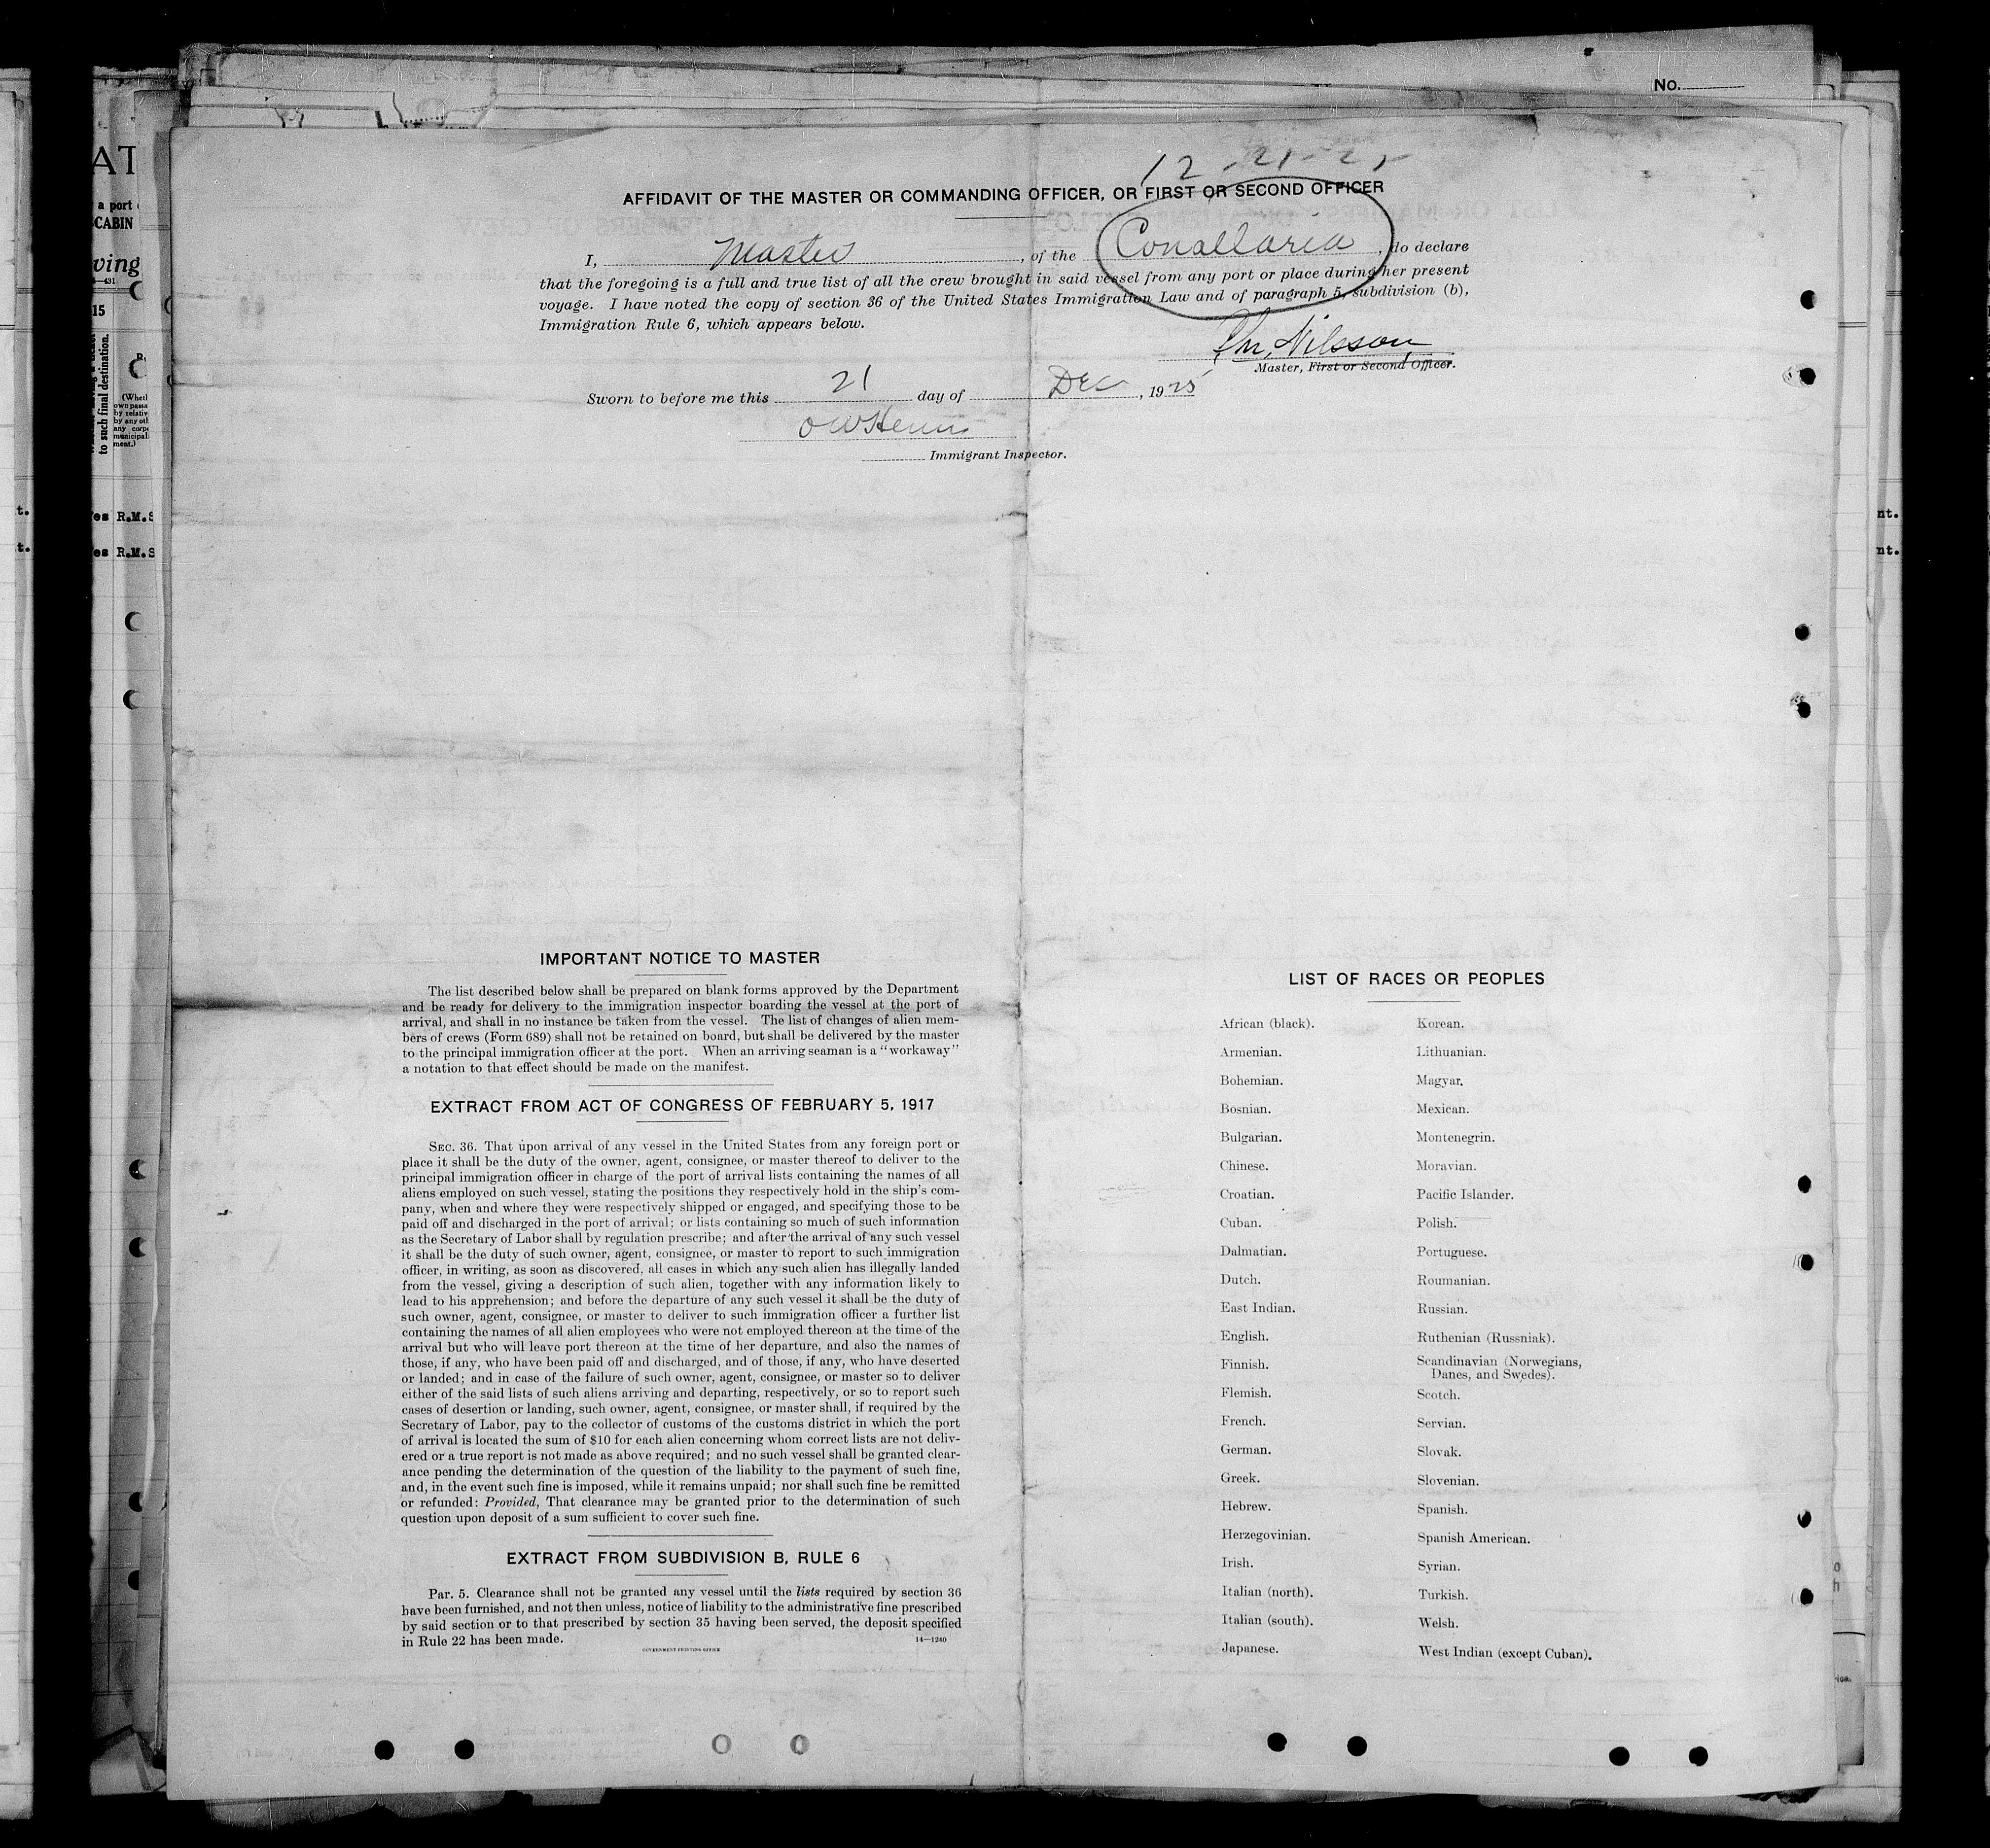 No.
AT
a port
-CABIN
ving
15
to such final destination.
(Whetl
own passa
by relativ
by any oth
any corpo
municipali
ment.)
es R.M.S
es R.M.S
t.
t.
nt.
nt.
12-21-25
AFFIDAVIT OF THE MASTER OR COMMANDING OFFICER, OR FIRST OR SECOND OFFICER
I, Master, of the Conallaria, do declare
that the foregoing is a full and true list of all the crew brought in said vessel from any port or place during her present
voyage. I have noted the copy of section 36 of the United States Immigration Law and of paragraph 5, subdivision (b),
Immigration Rule 6, which appears below.
Nilsson
Master, First or Second Officer.
Sworn to before me this 21 day of Dec, 1925
Immigrant Inspector.
IMPORTANT NOTICE TO MASTER
The list described below shall be prepared on blank forms approved by the Department
and be ready for delivery to the immigration inspector boarding the vessel at the port of
arrival, and shall in no instance be taken from the vessel. The list of changes of alien mem-
bers of crews (Form 689) shall not be retained on board, but shall be delivered by the master
to the principal immigration officer at the port. When an arriving seaman is a "workaway"
a notation to that effect should be made on the manifest.
EXTRACT FROM ACT OF CONGRESS OF FEBRUARY 5, 1917
SEC. 36. That upon arrival of any vessel in the United States from any foreign port or
place it shall be the duty of the owner, agent, consignee, or master thereof to deliver to the
principal immigration officer in charge of the port of arrival lists containing the names of all
aliens employed on such vessel, stating the positions they respectively hold in the ship's com-
pany, when and where they were respectively shipped or engaged, and specifying those to be
paid off and discharged in the port of arrival; or lists containing so much of such information
as the Secretary of Labor shall by regulation prescribe; and after the arrival of any such vessel
it shall be the duty of such owner, agent, consignee, or master to report to such immigration
officer, in writing, as soon as discovered, all cases in which any such alien has illegally landed
from the vessel, giving a description of such alien, together with any information likely to
lead to his apprehension; and before the departure of any such vessel it shall be the duty of
such owner, agent, consignee, or master to deliver to such immigration officer a further list
containing the names of all alien employees who were not employed thereon at the time of the
arrival but who will leave port thereon at the time of her departure, and also the names of
those, if any, who have been paid off and discharged, and of those, if any, who have deserted
or landed; and in case of the failure of such owner, agent, consignee, or master so to deliver
either of the said lists of such aliens arriving and departing, respectively, or so to report such
cases of desertion or landing, such owner, agent, consignee, or master shall, if required by the
Secretary of Labor, pay to the collector of customs of the customs district in which the port
of arrival is located the sum of $10 for each alien concerning whom correct lists are not deliv-
ered or a true report is not made as above required; and no such vessel shall be granted clear-
ance pending the determination of the question of the liability to the payment of such fine,
and, in the event such fine is imposed, while it remains unpaid; nor shall such fine be remitted
or refunded: Provided, That clearance may be granted prior to the determination of such
question upon deposit of a sum sufficient to cover such fine.
EXTRACT FROM SUBDIVISION B, RULE 6
Par. 5. Clearance shall not be granted any vessel until the lists required by section 36
have been furnished, and not then unless, notice of liability to the administrative fine prescribed
by said section or to that prescribed by section 35 having been served, the deposit specified
in Rule 22 has been made.
14—1240
GOVERNMENT PRINTING OFFICE
LIST OF RACES OR PEOPLES
African (black).
Armenian.
Bohemian.
Bosnian.
Bulgarian.
Chinese.
Croatian.
Cuban.
Dalmatian.
Dutch.
East Indian.
English.
Finnish.
Flemish.
French.
German.
Greek.
Hebrew.
Herzegovinian.
Irish.
Italian (north).
Italian (south).
Japanese.
Korean.
Lithuanian.
Magyar.
Mexican.
Montenegrin.
Moravian.
Pacific Islander.
Polish.
Portuguese.
Roumanian.
Russian.
Ruthenian (Russniak).
Scandinavian (Norwegians,
Danes, and Swedes).
Scotch.
Servian.
Slovak.
Slovenian.
Spanish.
Spanish American.
Syrian.
Turkish.
Welsh.
West Indian (except Cuban).